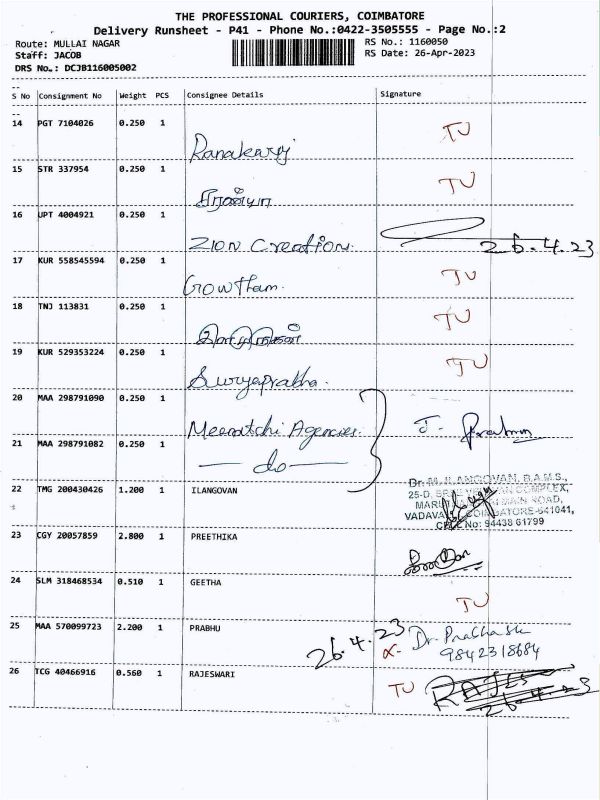 THE PROFESSIONAL COURIERS, COIMBATORE
Delivery Runsheet - P41 - Phone No.:0422-3505555 - Page No.:2
Route: MULLAI NAGAR RS No.: 1160050
Staff: JACOB RS Date: 26-Apr-2023
DRS No.: DCJB116005002
S No Consignment No Weight PCS Consignee Details Signature
14 PGT 7104026 0.250 1 TU
15 STR 337954 0.250 1 TU
16 UPT 4004921 0.250 1 ZION Creation. 26.4.23
17 KUR 558545594 0.250 1 Gowtham. TU
18 TNJ 113831 0.250 1 TU
19 KUR 529353224 0.250 1 Suryaprabha. TU
20 MAA 298791090 0.250 1 Meenatchi Agencies.
21 MAA 298791082 0.250 1 — do — J.
22 TMG 200430426 1.200 1 ILANGOVAN
Dr. M. ILANGOVAN, B.A.M.S.,
25-D, COMPLEX,
MAIN ROAD,
COIMBATORE-641041,
CELL No: 94438 61799
23 CGY 20057859 2.800 1 PREETHIKA
24 SLM 318468534 0.510 1 GEETHA TU
25 MAA 570099723 2.200 1 PRABHU 26.4.23 Dr. Prathask
9842318684
26 TCG 40466916 0.560 1 RAJESWARI TU
26.4.23